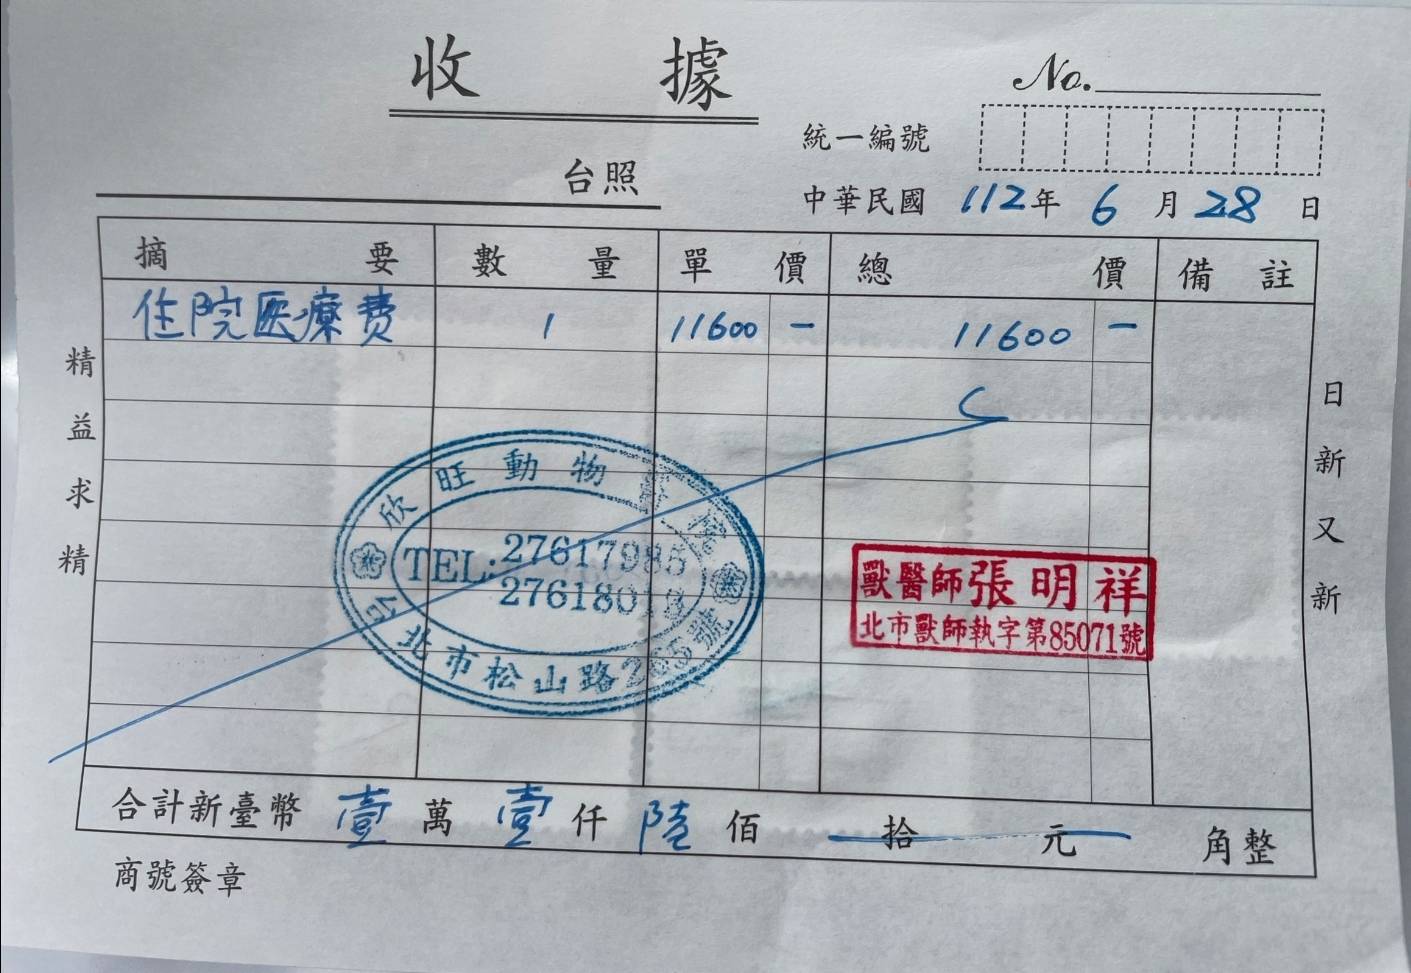 收據
No.
統一編號
台照
中華民國 112年 6月 28日
摘要 數量 單價 總價 備註
住院医療費 1 11600 - 11600 -
精益求精
日新又新
欣旺動物
TEL: 27617985
27618018
台北市松山路265號
獸醫師張明祥
北市獸師執字第85071號
合計新臺幣 壹萬壹仟陸佰拾元角整
商號簽章